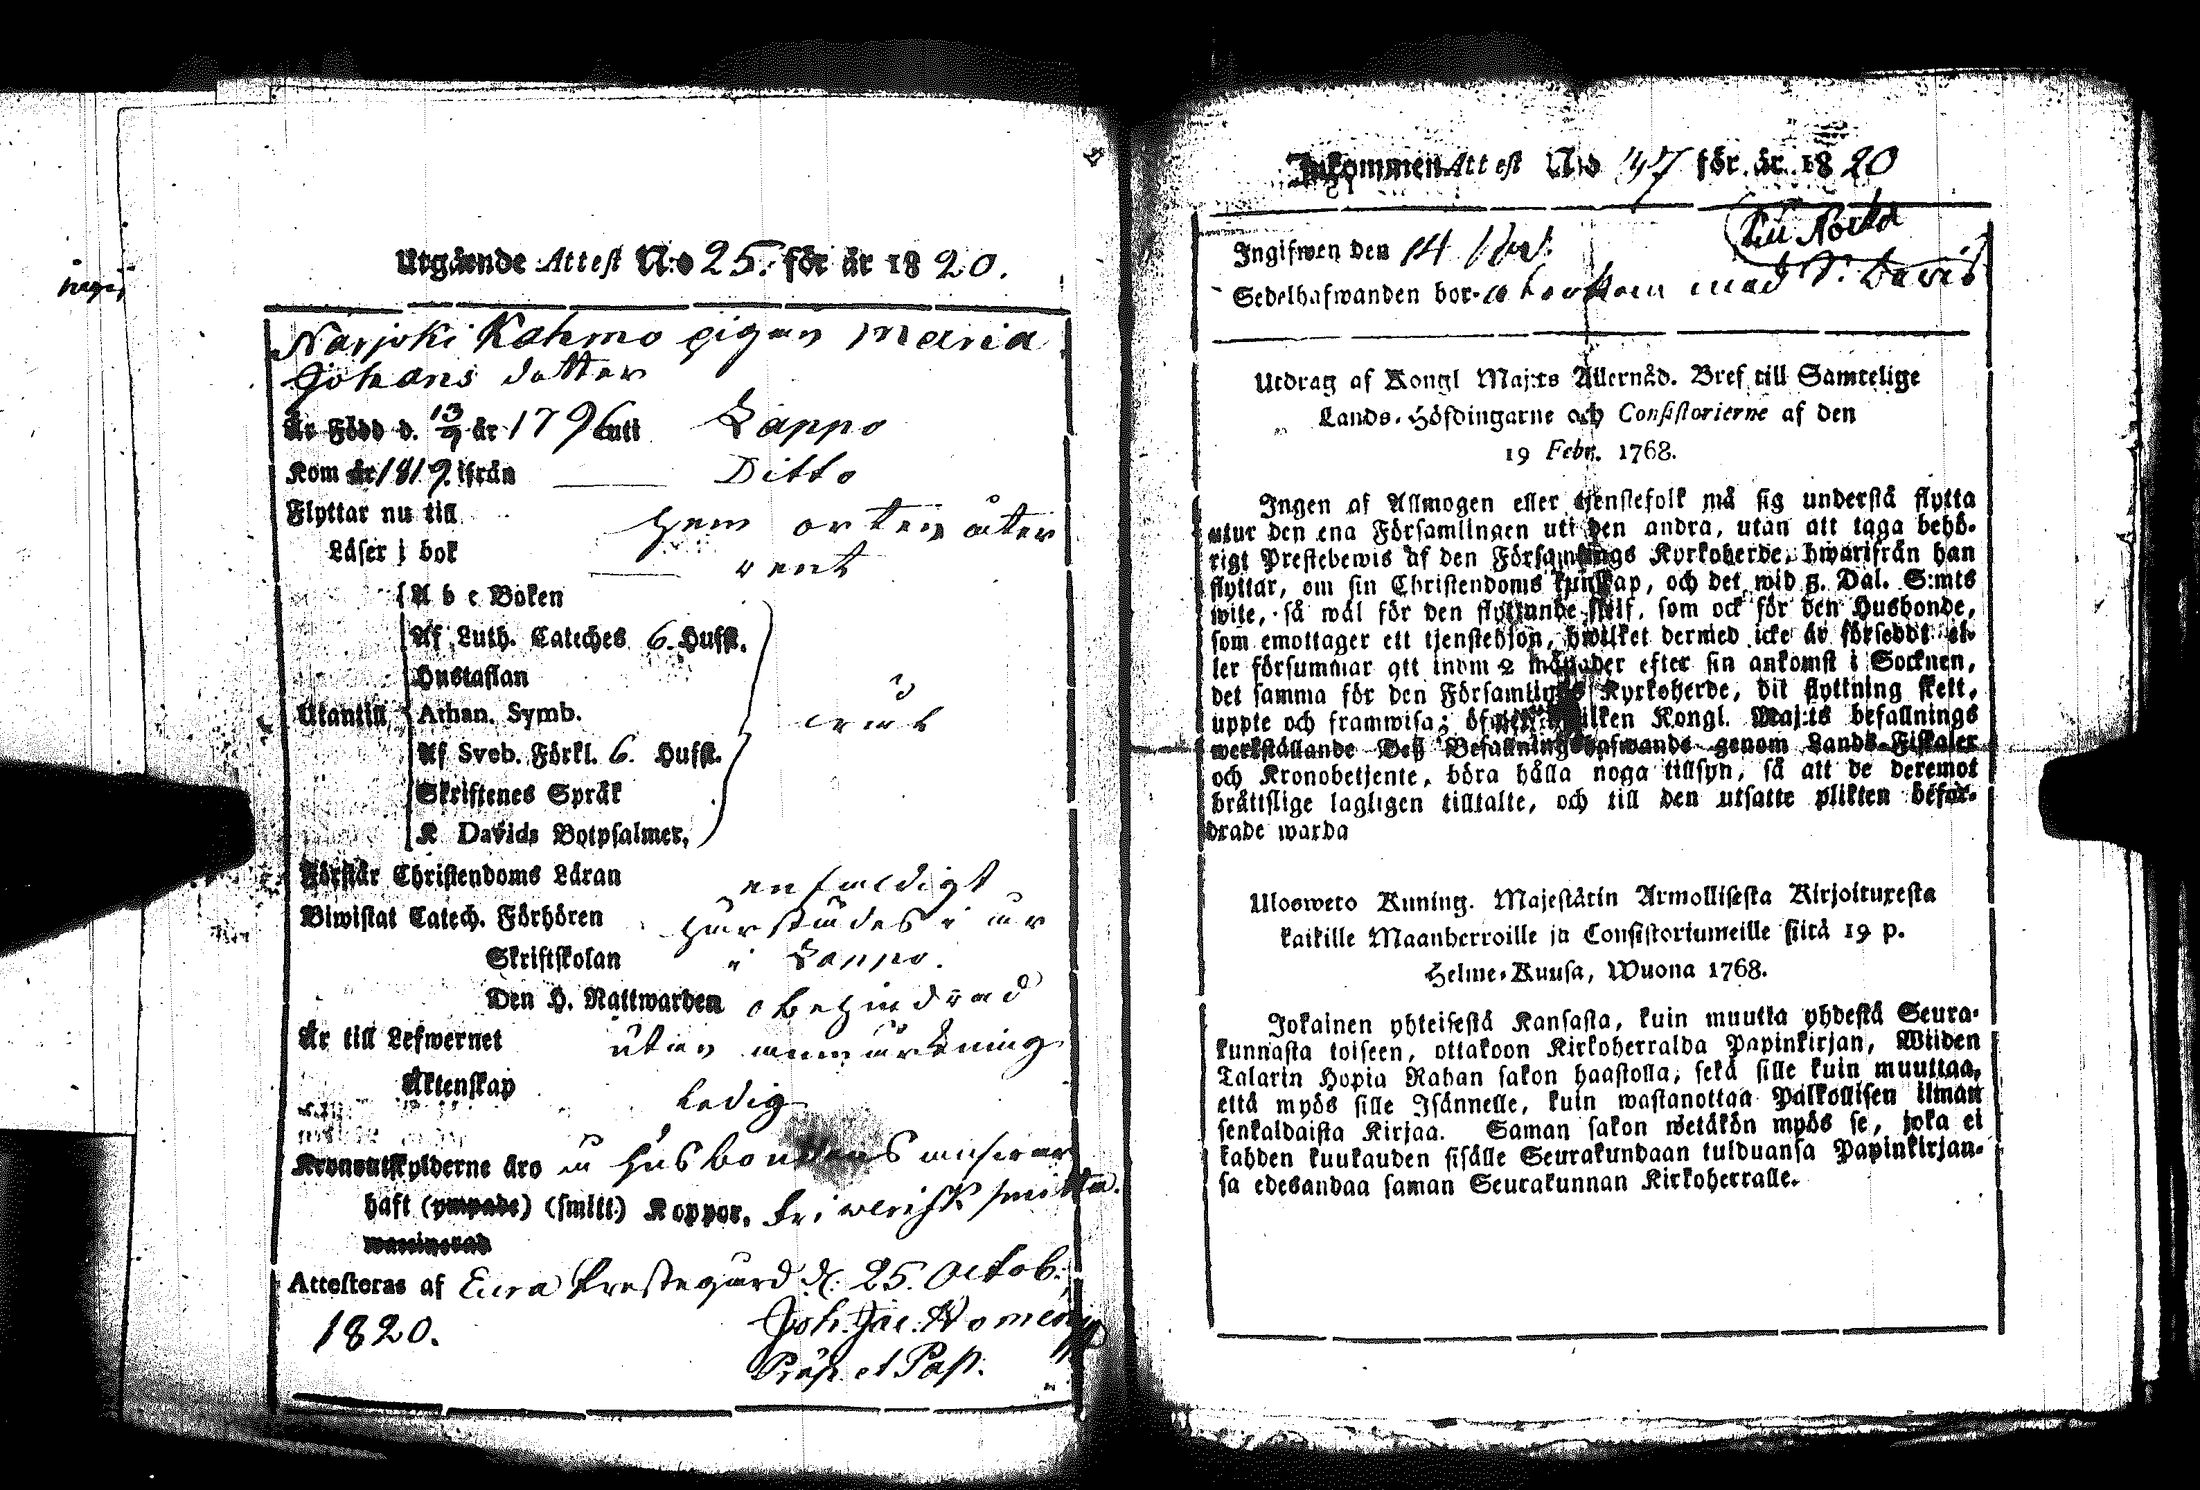 Utgående Attest N:o 25. för år 1820.
Narjoki Kahmo pigan Maria
Johans dotter
Är Född d. 13/9 år 1796 uti Lappo
Kom år 1819. ifrån Ditto
Flyttar nu till hem orten åter
Läser i bok rent
A b c Boken
Af Luth. Cateches 6. Hufst.
Hustaflan
Utantill Athan. Symb.
Af Sveb. Förkl. 6. Hufst.
Skriftenes Språk
K Davids Botpsalmer,
Förstår Christendoms Läran enfaldigt
Biwistat Catech. Förhören härstädes i år
Skriftskolan i Lappo.
Den H. Nattwarden obehindrad
Är till Lefwernet utan anmärkning
Äktenskap Ledig
Kronoutskylderne äro Husbondens
haft (ympade) (smitt.) Koppor, fri smitta.
waccinerad
Attesteras af Eura Prestegård d. 25. Octob.
1820. Joh. Jac.
Präp. et Past.
Inkommen Attest N:o 47 för år 1820
Ingifwen den 14
Sedelhafwanden bor
Utdrag af Kongl Maj:ts Allernåd. Bref till Samtelige
Lands-Höfdingarne och Consistorierne af den
19 Febr. 1768.
Ingen af Allmogen eller tjenstefolk må sig understå flytta
utur den ena Församlingen uti den andra, utan att taga behö-
rigt Prestebewis af den Församlings Kyrkoherde, hwarifrån han
flyttar, om sin Christendoms kunskap, och det wid 5. Dal. S:mts
wite, så wäl för den flyttande sjelf, som ock för den Husbonde,
som emottager ett tjenstehjon, hwilket dermed icke är försedt el-
ler försummar att inom 2 månader efter sin ankomst i Socknen,
det samma för den Församlings Kyrkoherde, dit flyttning skett,
uppte och framwisa; öfwer hwilken Kongl. Maj:ts befallnings
werkställande Deß Befallningshafwande genom Lands-Fiskaler
och Kronobetjente, böra hålla noga tillsyn, så att de deremot
bråttslige lagligen tilltalte, och till den utsatte plikten béfor-
drade warda
Uloswetо Kuning. Majestätin Armollisesta Kirjoituxesta
kaikille Maanherroille ja Consistoriumeille siitä 19 p.
Helme-Kuusa, Wuona 1768.
Jokainen yhteisestä Kansasta, kuin muutta yhdestä Seura-
kunnasta toiseen, ottakoon Kirkoherralda Papinkirjan, Wiiden
Talarin Hopia Rahan sakon haastolla, sekä sille kuin muuttaa,
että myös sille Isännelle, kuin wastanottaa Palkollisen ilman
senkaldaista Kirjaa. Saman sakon wetäkön myös se, joka ei
kahden kuukauden sisälle Seurakundaan tulduansa Papinkirjan-
sa edesandaa saman Seurakunnan Kirkoherralle.